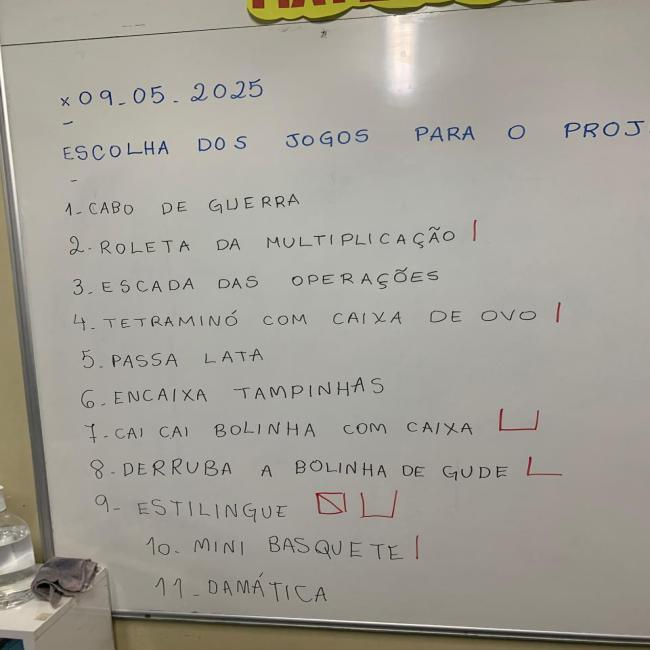 x 09-05-2025
ESCOLHA DOS JOGOS PARA O PROJ
1-CABO DE GUERRA
2-ROLETA DA MULTIPLICAÇÃO
3-ESCADA DAS OPERAÇÕES
4-TETRAMINÓ COM CAIXA DE OVO
5-PASSA LATA
6-ENCAIXA TAMPINHAS
7-CAI CAI BOLINHA COM CAIXA
8-DERRUBA A BOLINHA DE GUDE
9-ESTILINGUE
10-MINI BASQUETE
11-DAMÁTICA